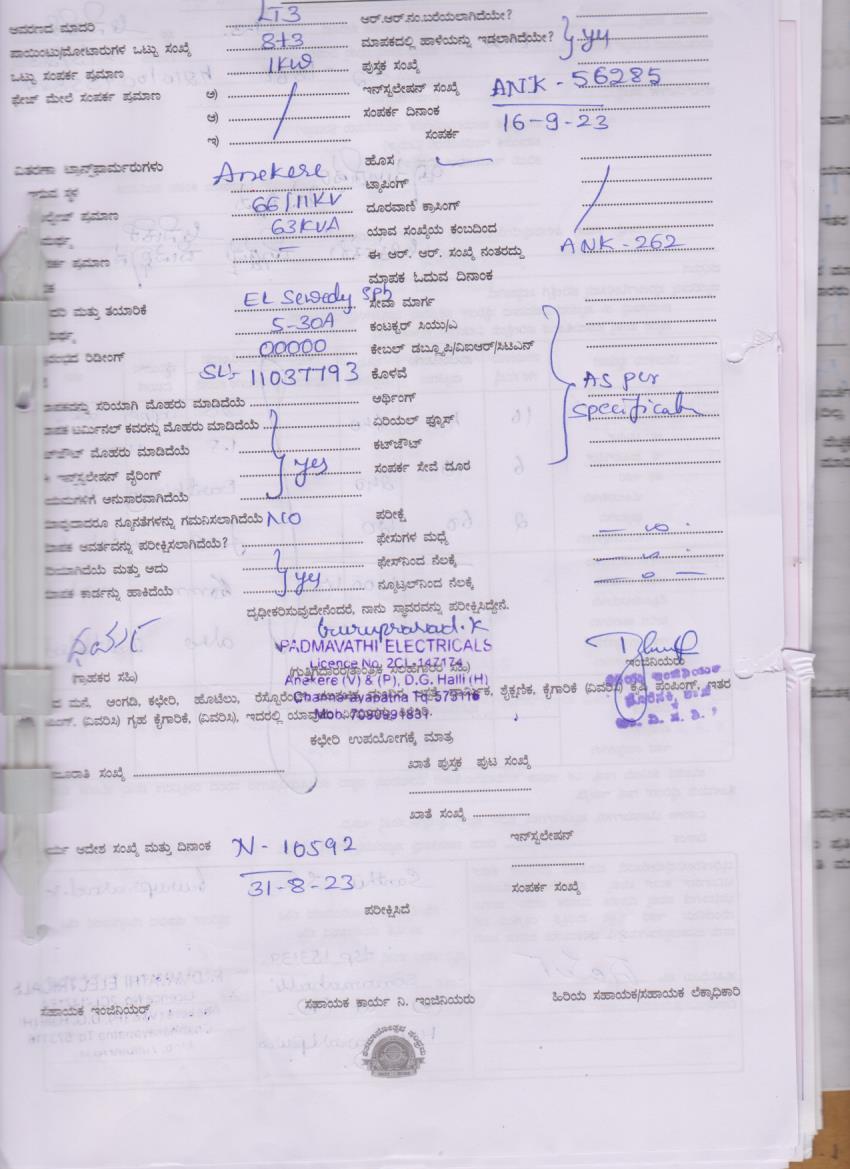 LT3 ಆರ್.ಆರ್.ನಂ.ಬರೆಯಲಾಗಿದೆಯೇ?
ಆವರಣದ ಮಾದರಿ
ಪಾಯಿಂಟು/ಮೋಟಾರುಗಳ ಒಟ್ಟು ಸಂಖ್ಯೆ 8+3 ಮಾಪಕದಲ್ಲಿ ಹಾಳೆಯನ್ನು ಇಡಲಾಗಿದೆಯೇ?
ಒಟ್ಟು ಸಂಪರ್ಕ ಪ್ರಮಾಣ 1KW ಪುಸ್ತಕ ಸಂಖ್ಯೆ
ಫೇಚ್ ಮೇಲೆ ಸಂಪರ್ಕ ಪ್ರಮಾಣ ಅ) ಇನ್‌ಸ್ಟಲೇಷನ್ ಸಂಖ್ಯೆ ANK - 56285
ಆ) ಸಂಪರ್ಕ ದಿನಾಂಕ 16-9-23
ಇ) ಸಂಪರ್ಕ
ವಿತರಣಾ ಟ್ರಾನ್ಸ್‌ಫಾರ್ಮರುಗಳು Anekere ಹೊಸ
ಸ್ಥಳ ಟ್ಯಾಪಿಂಗ್
ಪ್ರಮಾಣ 66/11KV ದೂರವಾಣಿ ಕ್ರಾಸಿಂಗ್
63KVA ಯಾವ ಸಂಖ್ಯೆಯ ಕಂಬದಿಂದ
ಪ್ರಮಾಣ ಈ ಆರ್. ಆರ್. ಸಂಖ್ಯೆ ನಂತರದ್ದು ANK-262
ಮಾಪಕ ಓದುವ ದಿನಾಂಕ
ಮತ್ತು ತಯಾರಿಕೆ EL Sewedy SPh ಸೇವಾ ಮಾರ್ಗ
5-30A ಕಂಟಕ್ಟರ್ ಸಿಯು/ಎ
ರಿಡೀಂಗ್ 00000 ಕೇಬಲ್ ಡಬ್ಲ್ಯೂಪಿ/ವಿಐಆರ್/ಸಿಟಿಎನ್
11037793 ಕೊಳವೆ As per
ಸರಿಯಾಗಿ ಮೊಹರು ಮಾಡಿದೆಯೆ ಅರ್ಥಿಂಗ್
ಟರ್ಮಿನಲ್ ಕವರನ್ನು ಮೊಹರು ಮಾಡಿದೆಯೆ ಏರಿಯಲ್ ಫ್ಯೂಸ್
ಮೊಹರು ಮಾಡಿದೆಯೆ ಕಟ್‌ಔಟ್
ಇನ್‌ಸ್ಟಲೇಷನ್ ವೈರಿಂಗ್ yes ಸಂಪರ್ಕ ಸೇವೆ ದೂರ
ಅನುಸಾರವಾಗಿದೆಯೆ
ನ್ಯೂನತೆಗಳನ್ನು ಗಮನಿಸಲಾಗಿದೆಯೆ NO ಪರೀಕ್ಷೆ
ಆವರ್ತವನ್ನು ಪರೀಕ್ಷಿಸಲಾಗಿದೆಯೆ? ಫೇಸುಗಳ ಮಧ್ಯೆ
ಮತ್ತು ಅದು ಫೇಸ್‌ನಿಂದ ನೆಲಕ್ಕೆ
ಕಾರ್ಡನ್ನು ಹಾಕಿದೆಯೆ ನ್ಯೂಟ್ರಲ್‌ನಿಂದ ನೆಲಕ್ಕೆ
ದೃಢೀಕರಿಸುವುದೇನೆಂದರೆ, ನಾನು ಸ್ಥಾವರವನ್ನು ಪರೀಕ್ಷಿಸಿದ್ದೇನೆ.
Guruprasad.K
PADMAVATHI ELECTRICALS
Licence No. 2CL-147174 ಇಂಜಿನಿಯರು
(ಗ್ರಾಹಕರ ಸಹಿ) Anekere (V) & (P), D.G. Halli (H)
Channarayapatna Tq-573116
Mob: 7090991831
ಕಛೇರಿ ಉಪಯೋಗಕ್ಕೆ ಮಾತ್ರ
ಸಂಖ್ಯೆ ಖಾತೆ ಪುಸ್ತಕ ಪುಟ ಸಂಖ್ಯೆ
ಖಾತೆ ಸಂಖ್ಯೆ
ಆದೇಶ ಸಂಖ್ಯೆ ಮತ್ತು ದಿನಾಂಕ N - 10592 ಇನ್‌ಸ್ಟಲೇಷನ್
31-8-23 ಸಂಪರ್ಕ ಸಂಖ್ಯೆ
ಪರೀಕ್ಷಿಸಿದೆ
ಸಹಾಯಕ ಇಂಜಿನಿಯರ್ ಸಹಾಯಕ ಕಾರ್ಯ ನಿ. ಇಂಜಿನಿಯರು ಹಿರಿಯ ಸಹಾಯಕ/ಸಹಾಯಕ ಲೆಕ್ಕಾಧಿಕಾರಿ